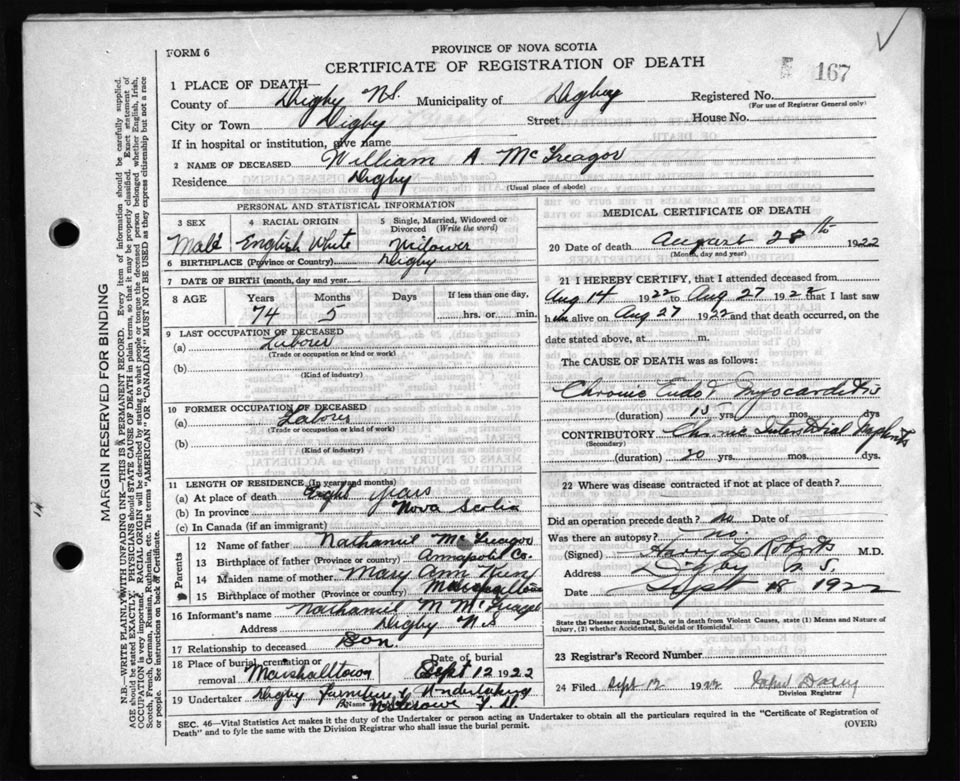 FORM 6
PROVINCE OF NOVA SCOTIA
CERTIFICATE OF REGISTRATION OF DEATH
167
1 PLACE OF DEATH—
County of Digby N.S. Municipality of Digby Registered No.
(For use of Registrar General only)
City or Town Digby Street House No.
If in hospital or institution, give name
2 NAME OF DECEASED William A McGreagor
Residence Digby
(Usual place of abode)
PERSONAL AND STATISTICAL INFORMATION
3 SEX Male
4 RACIAL ORIGIN English White
5 Single, Married, Widowed or Divorced (Write the word) Widower
6 BIRTHPLACE (Province or Country) Digby
7 DATE OF BIRTH (month, day and year)
8 AGE Years 74 Months 5 Days If less than one day, hrs. or min.
9 LAST OCCUPATION OF DECEASED
(a) Labourer
(Trade or occupation or kind or work)
(b)
(Kind of industry)
10 FORMER OCCUPATION OF DECEASED
(a) Labourer
(Trade or occupation or kind of work)
(b)
(Kind of industry)
11 LENGTH OF RESIDENCE (In years and months)
(a) At place of death Eight years
(b) In province Nova Scotia
(c) In Canada (if an immigrant)
Parents
12 Name of father Nathaniel McGreagor
13 Birthplace of father (Province or country) Annapolis Co.
14 Maiden name of mother Mary Ann
15 Birthplace of mother (Province or country)
16 Informant's name Nathaniel M
Address Digby N.S
17 Relationship to deceased Son.
18 Place of burial, cremation or removal Marshalltown Date of burial Sept 12 1922
19 Undertaker Digby Furniture & Undertaking
Name
MEDICAL CERTIFICATE OF DEATH
20 Date of death August 28th 1922
(Month, day and year)
21 I HEREBY CERTIFY, that I attended deceased from
Aug 14 1922 to Aug 27 1922 that I last saw
him alive on Aug 27 1922 and that death occurred, on the
date stated above, at m.
The CAUSE OF DEATH was as follows:
Chronic Endo & Myocarditis
(duration) 15 yrs. mos. dys
CONTRIBUTORY Chronic Interstitial Nephritis
(Secondary) (duration) 20 yrs. mos. dys
22 Where was disease contracted if not at place of death?
Did an operation precede death? no Date of
Was there an autopsy? no
(Signed) Harry L Roberts M.D.
Address Digby N.S.
Date Sept 18 1922
State the Disease causing Death, or in death from Violent Causes, state (1) Means and Nature of
Injury, (2) whether Accidental, Suicidal or Homicidal.
23 Registrar's Record Number
24 Filed Sept 12 1922
Division Registrar
SEC. 46—Vital Statistics Act makes it the duty of the Undertaker or person acting as Undertaker to obtain all the particulars required in the "Certificate of Registration of
Death" and to fyle the same with the Division Registrar who shall issue the burial permit. (OVER)
MARGIN RESERVED FOR BINDING
N.B.—WRITE PLAINLY WITH UNFADING INK—THIS IS A PERMANENT RECORD. Every item of information should be carefully supplied.
AGE should be stated EXACTLY. PHYSICIANS should STATE CAUSE OF DEATH in plain terms, so that it may be properly classified. Exact statement of
OCCUPATION is very important. RACIAL ORIGIN will be described by stating to what people or tongue the deceased person belonged whether English, Irish,
Scotch, French, German, Russian, Ruthenian, etc. The terms "AMERICAN" OR "CANADIAN" MUST NOT BE USED as they express citizenship but not a race
or people. See instructions on back of Certificate.